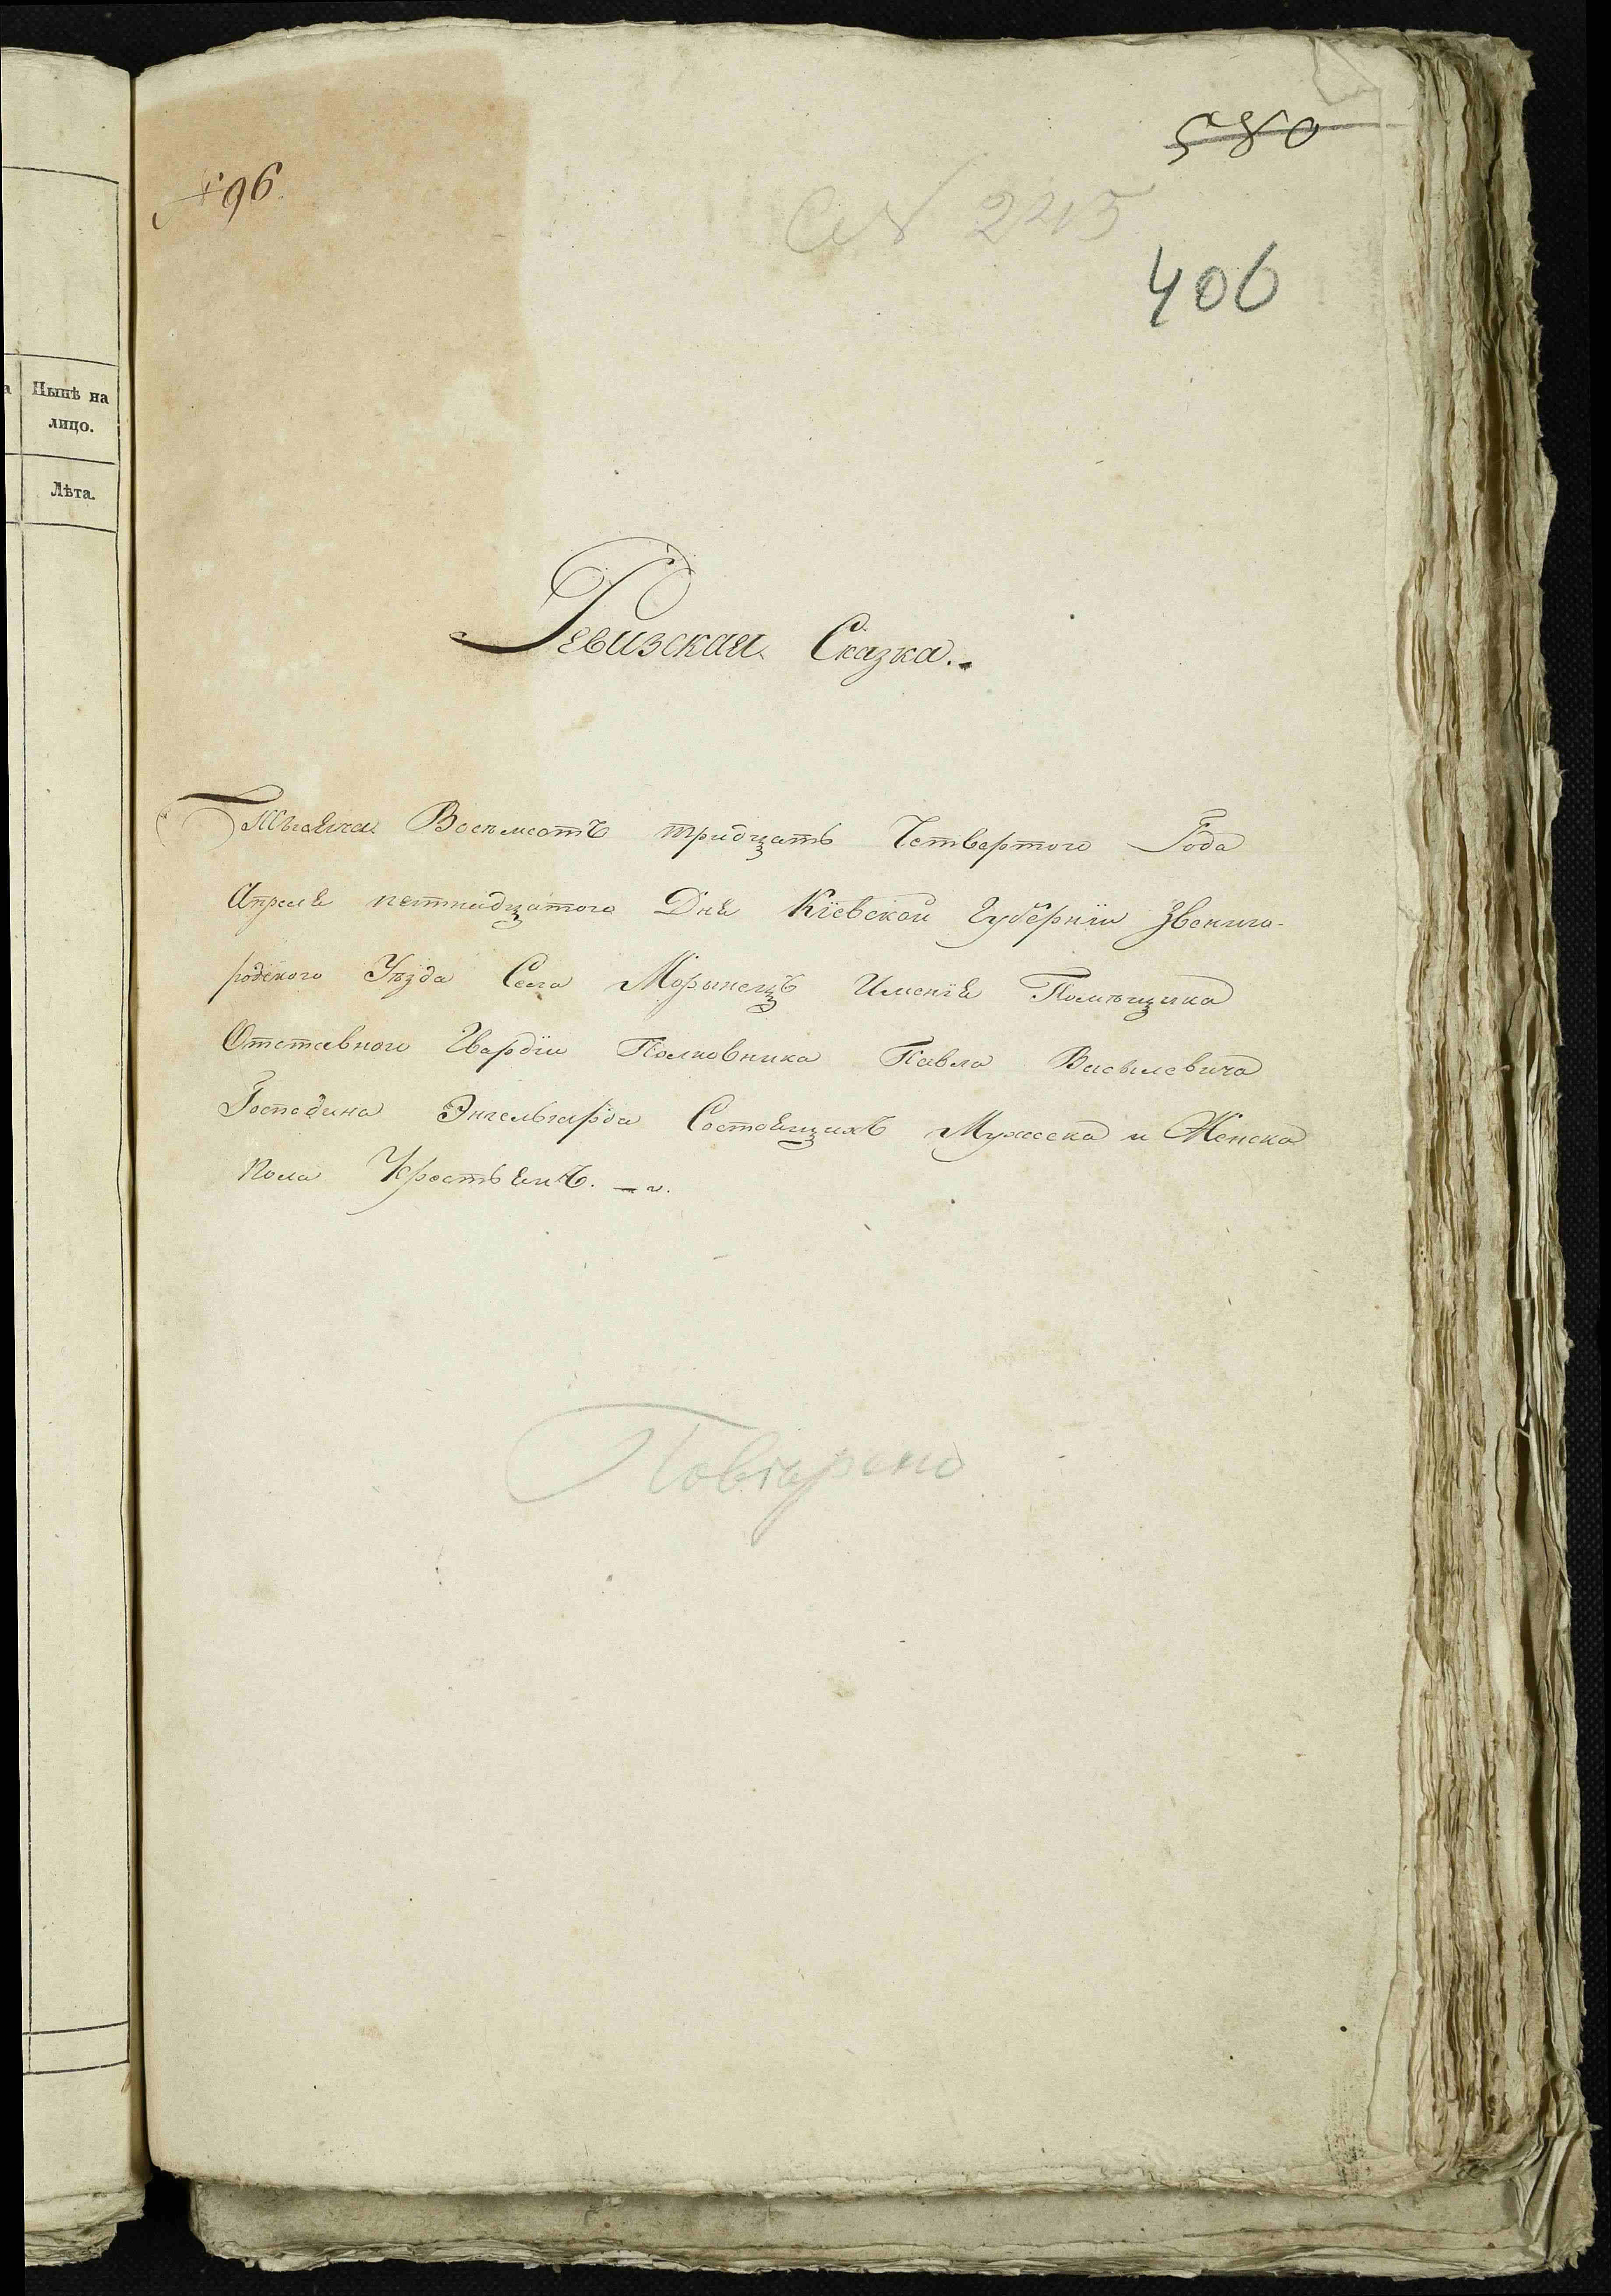 580
№ 96.
№ 245
406
Нынѣ на
лицо.
Лѣта.
Ревизская Сказка.
Тысяча Восемсотъ тридцать Четвертого Года
Апреля петнадцатого Дня Кіевской Губерніи Звениго-
родского Уѣзда Села Морынецъ Именія Помѣщика
Отставного Гвардіи Полковника Павла Васылевича
Господина Энгельгарда Состоящихъ Мужеска и Женска
пола Крестьянъ.
Повѣрено